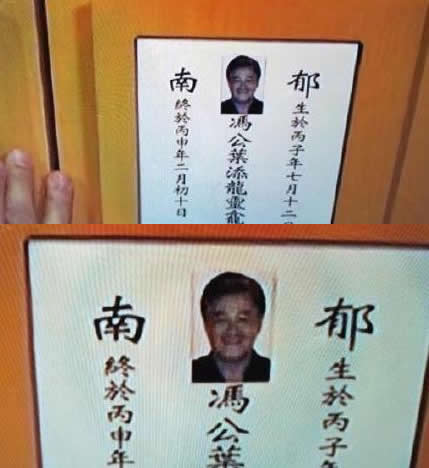 郁
生於丙子年七月十二
馮公葉添龍靈
南
終於丙申年二月初十日
郁
生於丙子年
馮公葉
南
終於丙申年